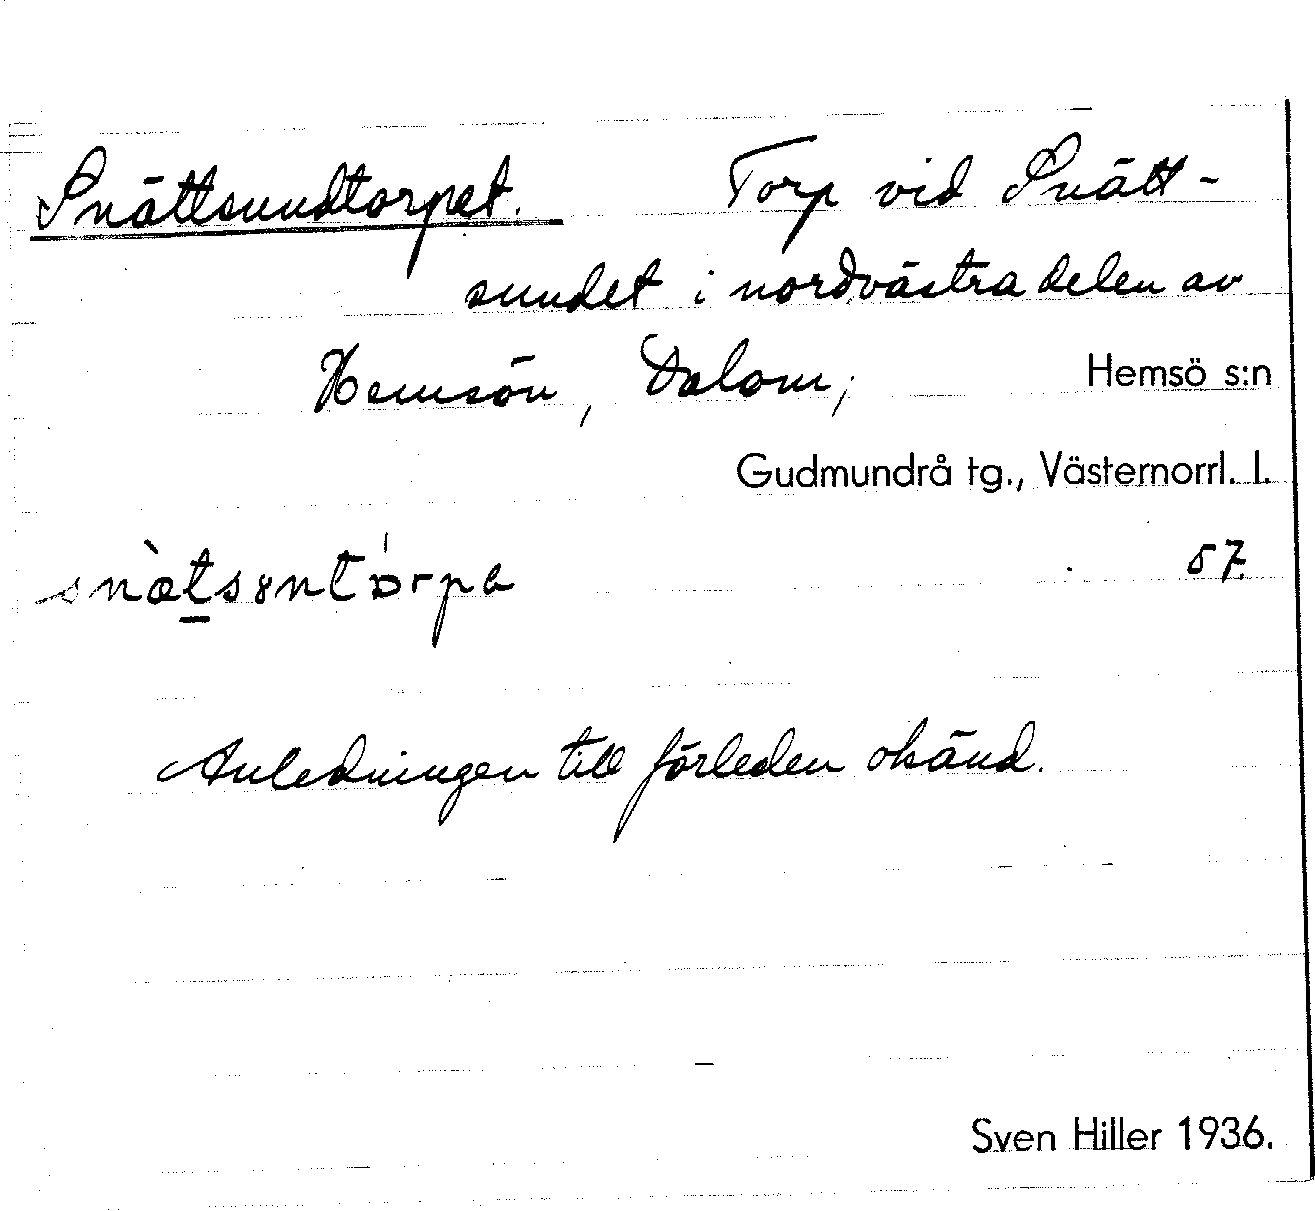 Snättsundtorpet. Torp vid Snätt-
sundet i nordvästra delen av
Hemsön, Dalom; Hemsö s:n
Gudmundrå tg., Västernorrl. l.
57.
Anledningen till förleden okänd.
Sven Hiller 1936.